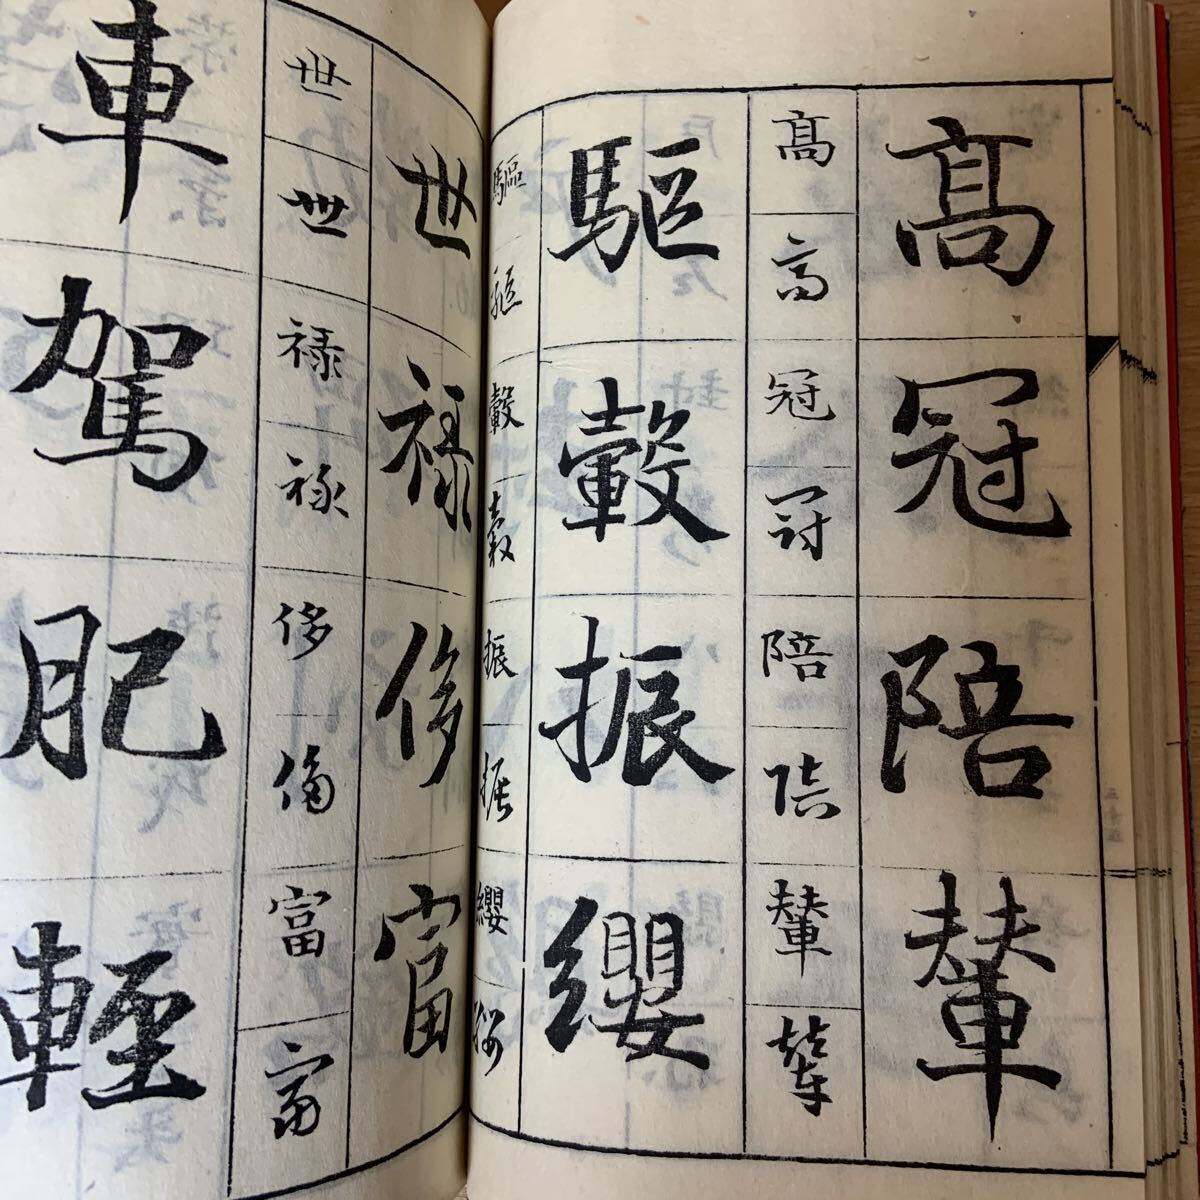 髙冠陪輦
髙高冠冠陪陪輦輦
驅轂振纓
驅驅轂轂振振纓纓
世禄侈富
世世禄禄侈侈富富
車駕肥輕